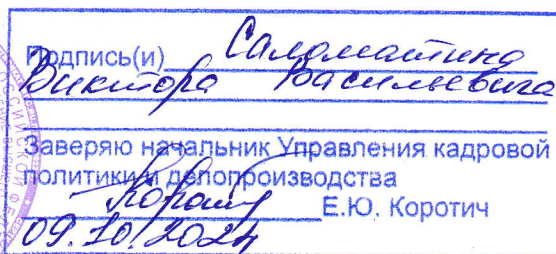 Подпись(и) Саломатина
Виктора Васильевича
Заверяю начальник Управления кадровой
политики и делопроизводства
Е.Ю. Коротич
09.10.2024